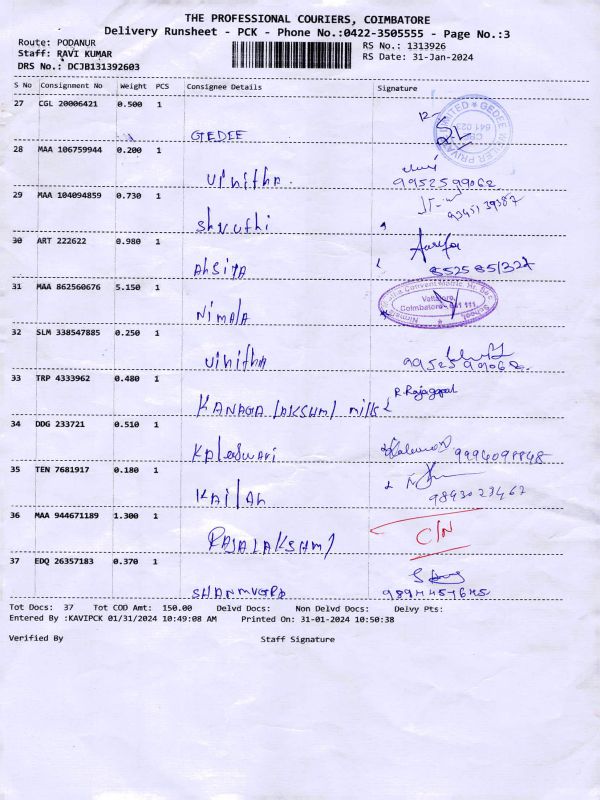 THE PROFESSIONAL COURIERS, COIMBATORE
Delivery Runsheet - PCK - Phone No.:0422-3505555 - Page No.:3
Route: PODANUR
RS No.: 1313926
Staff: RAVI KUMAR
RS Date: 31-Jan-2024
DRS No.: DCJB131392603
S No Consignment No Weight PCS Consignee Details Signature
27 CGL 20006421 0.500 1
GEDEE
28 MAA 106759944 0.200 1
Vinitha.
9952599062
29 MAA 104094859 0.730 1
Shruthi
9345139387
30 ART 222622 0.980 1
31 MAA 862560676 5.150 1
Nimala
Coimbatore - 641 111
32 SLM 338547885 0.250 1
Vinitha
9952599062
33 TRP 4333962 0.480 1
R. Rajagopal
KANAGALAKSHMI mills
34 DDG 233721 0.510 1
Kaleswari
35 TEN 7681917 0.180 1
KAILAH
9893023462
36 MAA 944671189 1.300 1
C/N
RAJALAKSHMI
37 EDQ 26357183 0.370 1
Tot Docs: 37 Tot COD Amt: 150.00 Delvd Docs: Non Delvd Docs: Delvy Pts:
Entered By :KAVIPCK 01/31/2024 10:49:08 AM Printed On: 31-01-2024 10:50:38
Verified By Staff Signature